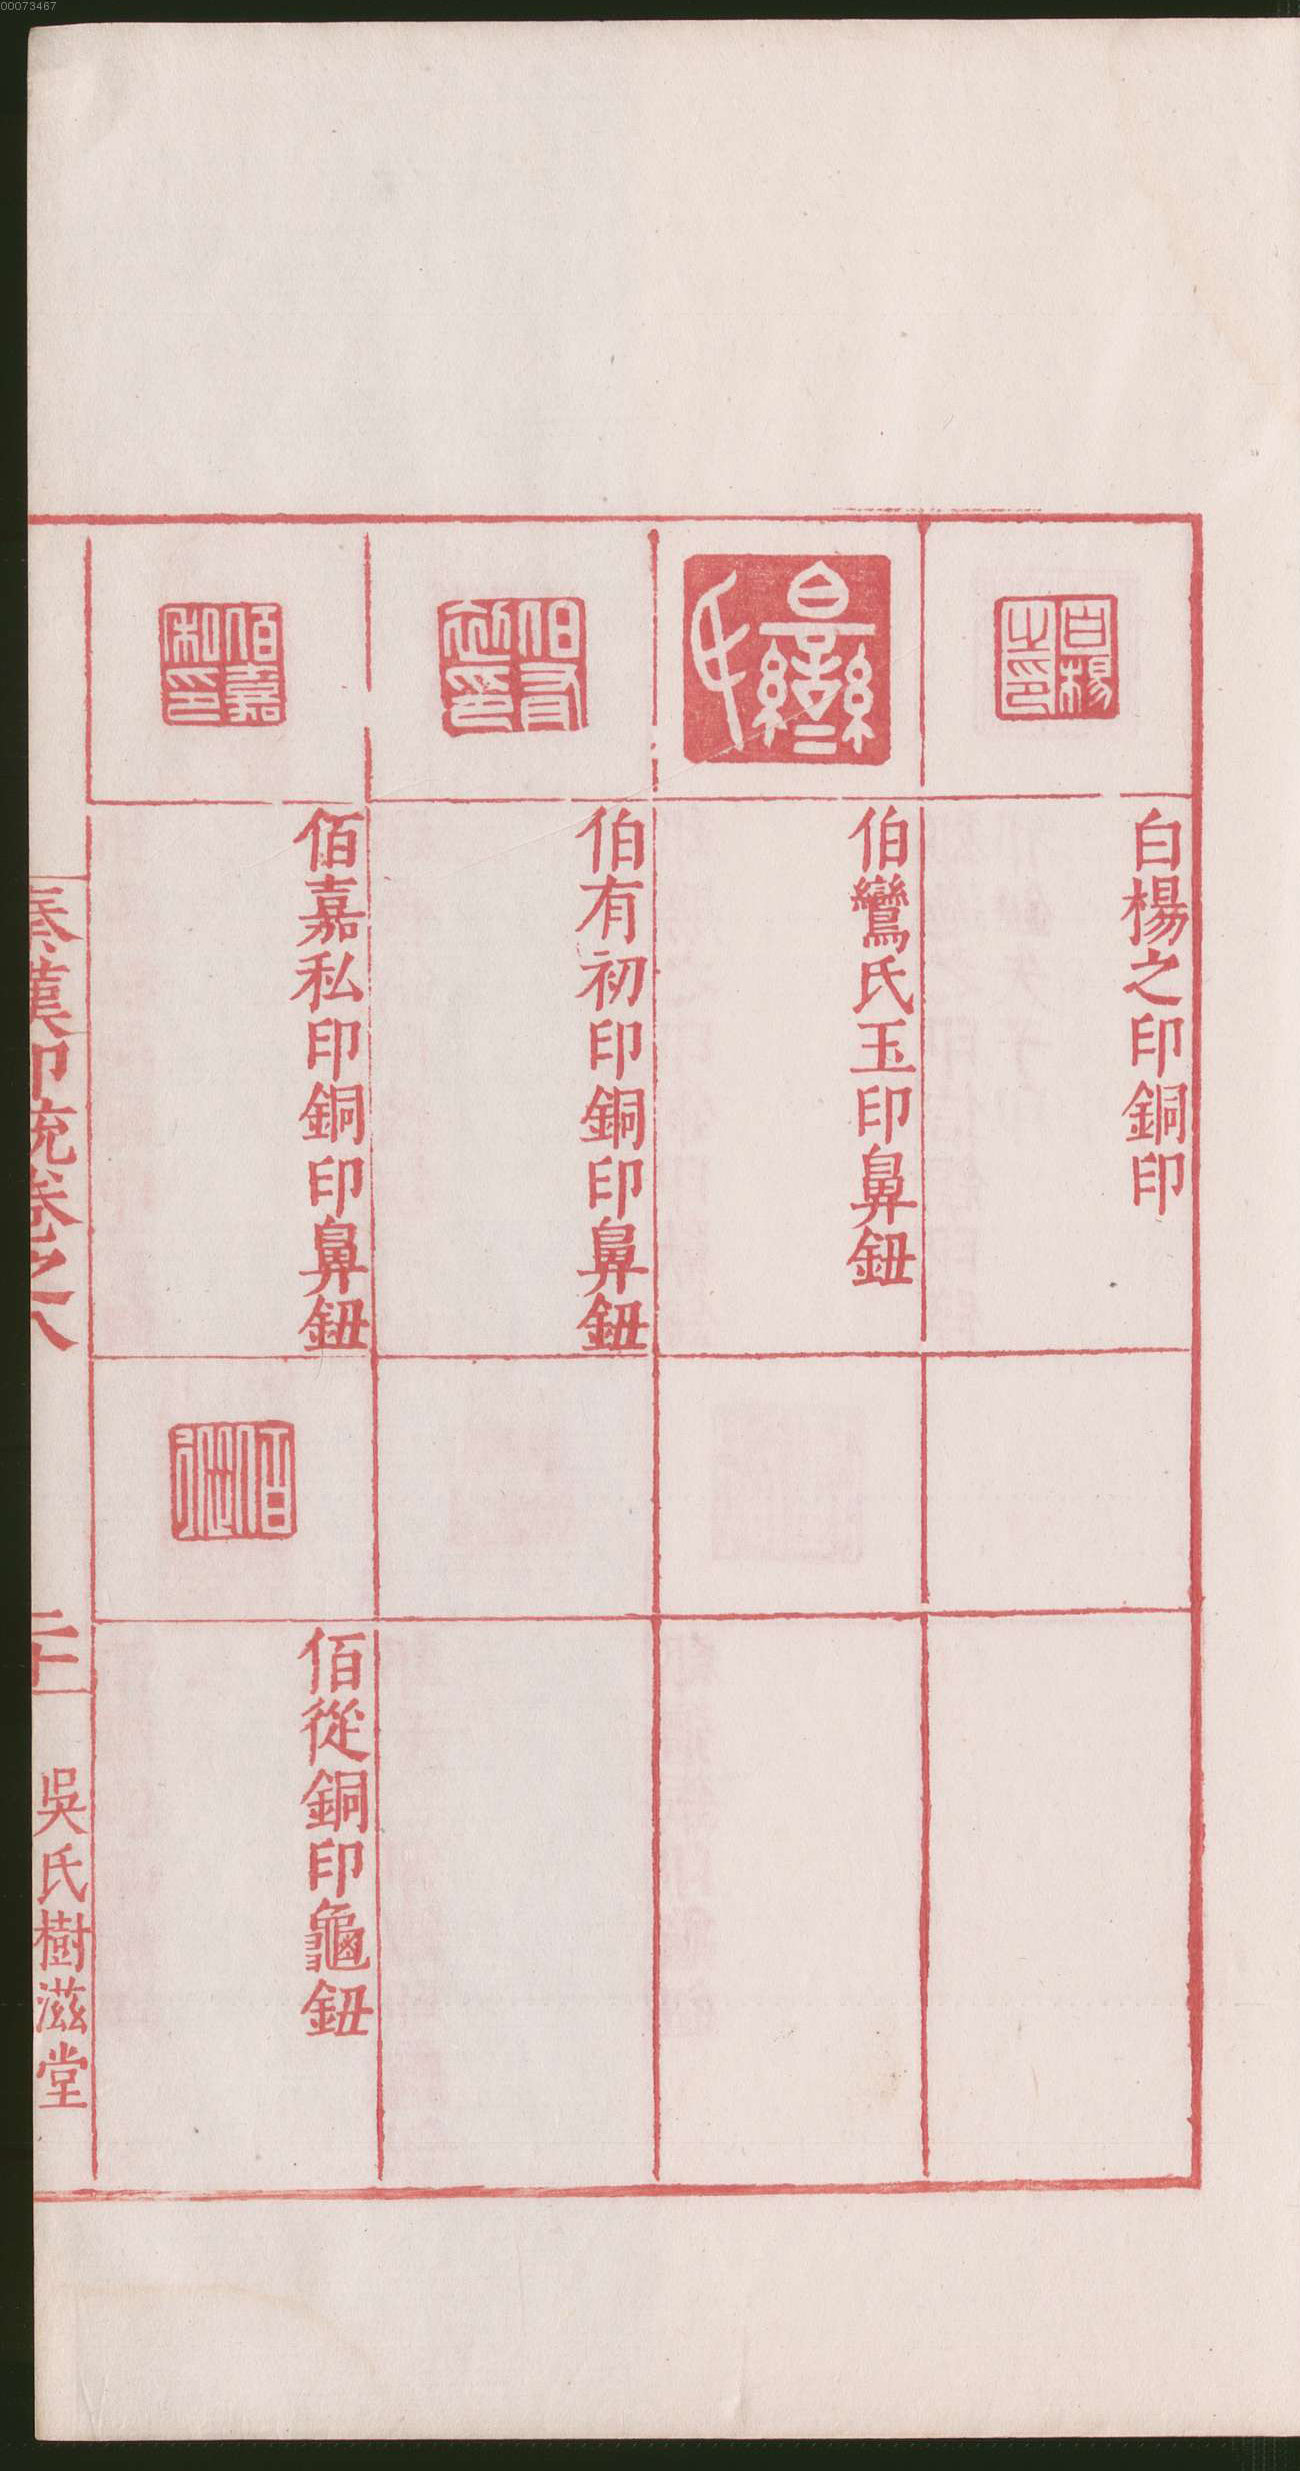 00073467
白楊之印
白楊之印銅印
伯鸞氏玉印鼻鈕
伯有初印
伯有初印銅印鼻鈕
佰嘉私印
佰嘉私印銅印鼻鈕
佰從
佰從銅印龜鈕
秦漢印統卷之八
二十
吳氏樹滋堂